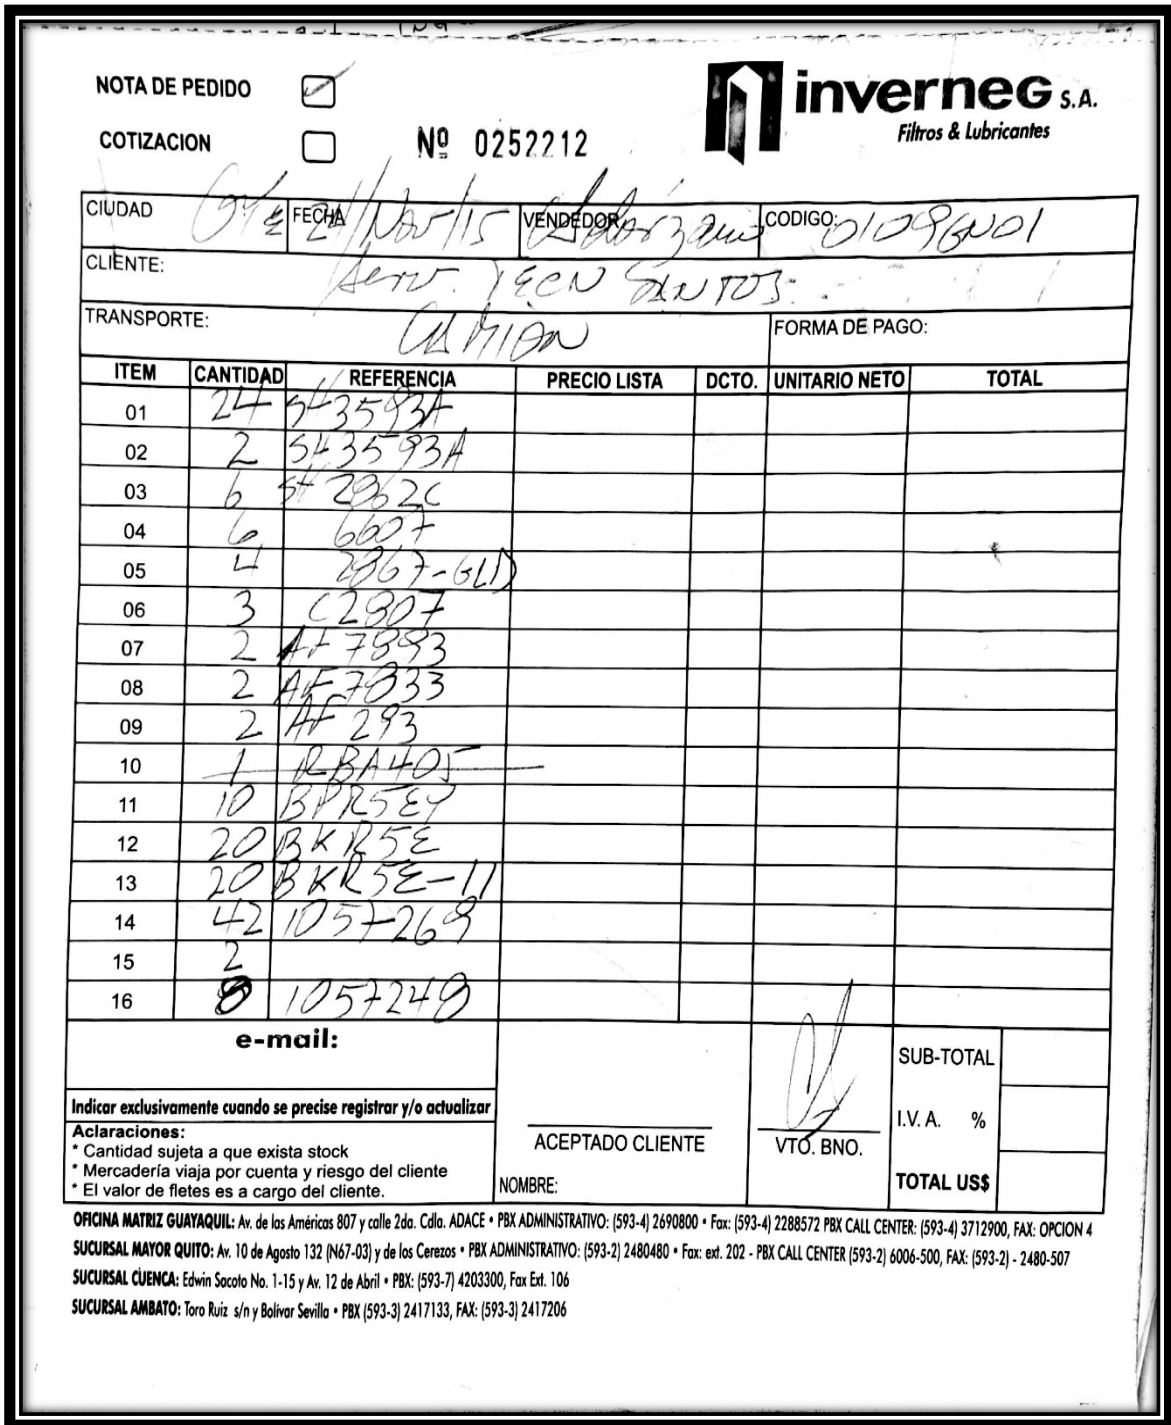 NOTA DE PEDIDO
inverneg S.A.
Filtros & Lubricantes
COTIZACION
Nº 0252212
CIUDAD FECHA /Nov/15 VENDEDOR CODIGO:
CLIENTE: TECN SANTOS
TRANSPORTE: CAMION FORMA DE PAGO:
ITEM CANTIDAD REFERENCIA PRECIO LISTA DCTO. UNITARIO NETO TOTAL
01 24 SH3593A
02 2 SH3593A
03 6 2862C
04 6 6607
05 4 2867-GLD
06 3 C2807
07 2 AF 7893
08 2 AF 7833
09 2 AF 293
10 1 RBA405
11 10 BPR5EY
12 20 BKR5E
13 20 BKR5E-11
14 42 1057269
15 2
16 8 1057248
e-mail:
Indicar exclusivamente cuando se precise registrar y/o actualizar
Aclaraciones:
* Cantidad sujeta a que exista stock
* Mercadería viaja por cuenta y riesgo del cliente
* El valor de fletes es a cargo del cliente.
ACEPTADO CLIENTE
NOMBRE:
VTO. BNO.
SUB-TOTAL
I.V.A. %
TOTAL US$
OFICINA MATRIZ GUAYAQUIL: Av. de las Américas 807 y calle 2da. Cdla. ADACE • PBX ADMINISTRATIVO: (593-4) 2690800 • Fax: (593-4) 2288572 PBX CALL CENTER: (593-4) 3712900, FAX: OPCION 4
SUCURSAL MAYOR QUITO: Av. 10 de Agosto 132 (N67-03) y de los Cerezos • PBX ADMINISTRATIVO: (593-2) 2480480 • Fax: ext. 202 - PBX CALL CENTER (593-2) 6006-500, FAX: (593-2) - 2480-507
SUCURSAL CUENCA: Edwin Sacoto No. 1-15 y Av. 12 de Abril • PBX: (593-7) 4203300, Fax Ext. 106
SUCURSAL AMBATO: Toro Ruiz s/n y Bolívar Sevilla • PBX (593-3) 2417133, FAX: (593-3) 2417206